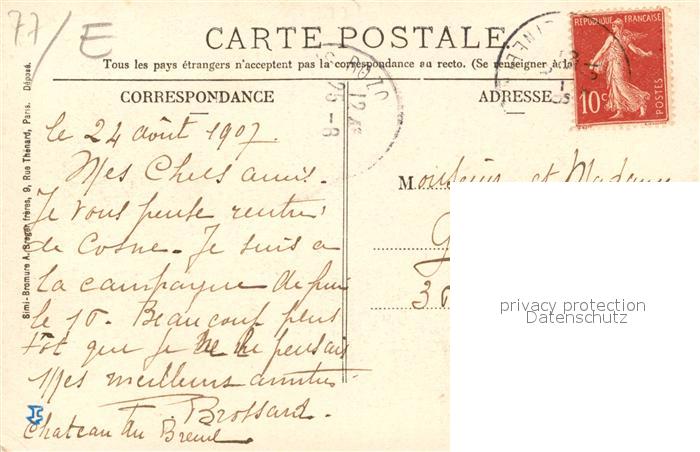 77/E
CARTE POSTALE
Tous les pays étrangers n'acceptent pas la correspondance au recto. (Se renseigner à la
CORRESPONDANCE
ADRESSE
RÉPUBLIQUE FRANÇAISE
10c
POSTES
12
25-8
le 24 août 1907.
Mes Chers amis.
Je vous pense rentrés
de Cosne. Je suis a
la campagne depuis
le 10. Beaucoup plus
tôt que je ne le pensais
Mes meilleures amitiés
F. Brossard.
Chateau du Breuil
Monsieur et Madame
G
30
Simi-Bromure A. Breger frères, 9, Rue Thénard, Paris. Déposé.
privacy protection
Datenschutz